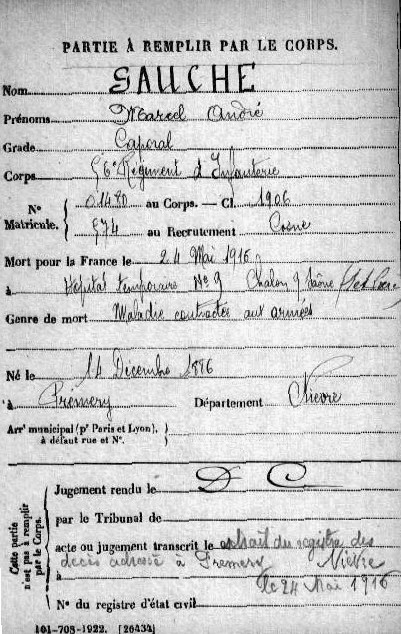 PARTIE À REMPLIR PAR LE CORPS.
Nom GAUCHE
Prénoms Marcel André
Grade Caporal
Corps 56e Régiment d'Infanterie
N° Matricule. { 01480 au Corps. — Cl. 1906
574 au Recrutement Cosne
Mort pour la France le 24 Mai 1916
à Hôpital temporaire N° 9 Chalon s/ Saône
Genre de mort Maladie contractée aux armées
Né le 14 Décembre 1886
à Prémery Département Nièvre
Arrt municipal (pr Paris et Lyon), à défaut rue et N°.
Cette partie n'est pas à remplir par le Corps.
Jugement rendu le D C
par le Tribunal de
acte ou jugement transcrit le extrait du registre des
décès adressé à Prémery Nièvre
à le 24 Mai 1916
N° du registre d'état civil
101-708-1922. [26434]